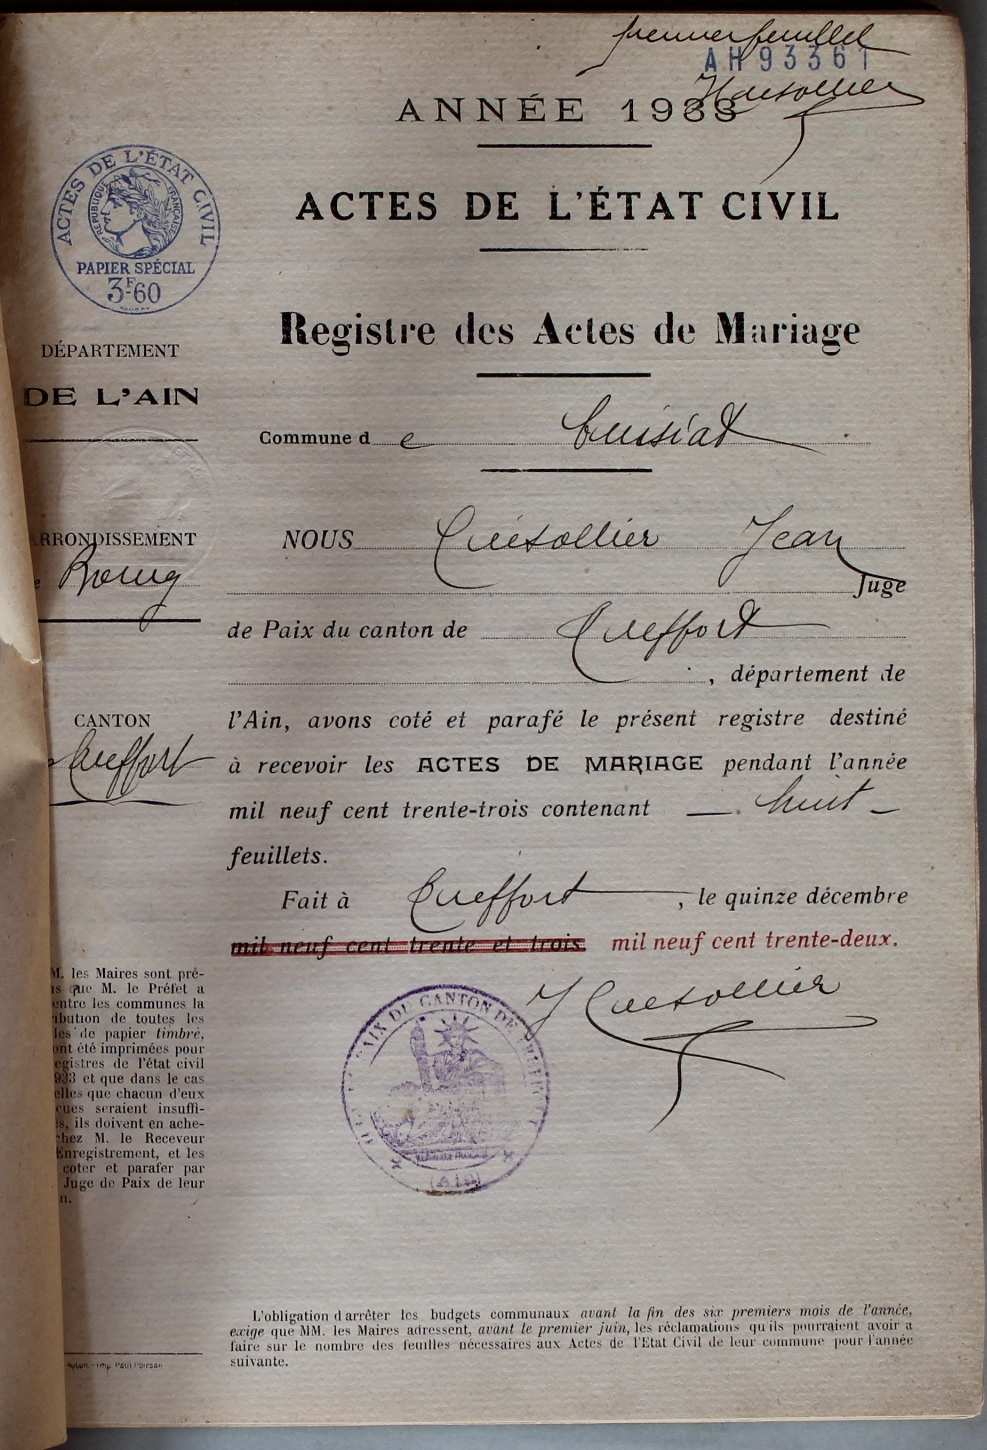 premier feuillet
AH93361
ANNÉE 1933
ACTES DE L'ÉTAT CIVIL
ACTES DE L'ÉTAT CIVIL
RÉPUBLIQUE FRANÇAISE
PAPIER SPÉCIAL
3F60
Registre des Actes de Mariage
DÉPARTEMENT
DE L'AIN
Commune de Cuisiat
ARRONDISSEMENT
e Bourg
NOUS Cuésollier Jean
Juge
de Paix du canton de Treffort
, département de
CANTON
Treffort
l'Ain, avons coté et parafé le présent registre destiné
à recevoir les ACTES DE MARIAGE pendant l'année
mil neuf cent trente-trois contenant huit
feuillets.
Fait à Treffort, le quinze décembre
mil neuf cent trente et trois mil neuf cent trente-deux.
M. les Maires sont pré-
s que M. le Préfet a
entre les communes la
ibution de toutes les
les de papier timbré,
ont été imprimées pour
egistres de l'état civil
933 et que dans le cas
elles que chacun d'eux
cues seraient insuffi-
s, ils doivent en ache-
chez M. le Receveur
Enregistrement, et les
coter et parafer par
Juge de Paix de leur
n.
PAIX DU CANTON DE
(AIN)
L'obligation d'arrêter les budgets communaux avant la fin des six premiers mois de l'année,
exige que MM. les Maires adressent, avant le premier juin, les réclamations qu'ils pourraient avoir a
faire sur le nombre des feuilles nécessaires aux Actes de l'Etat Civil de leur commune pour l'année
suivante.
Imp. Paul